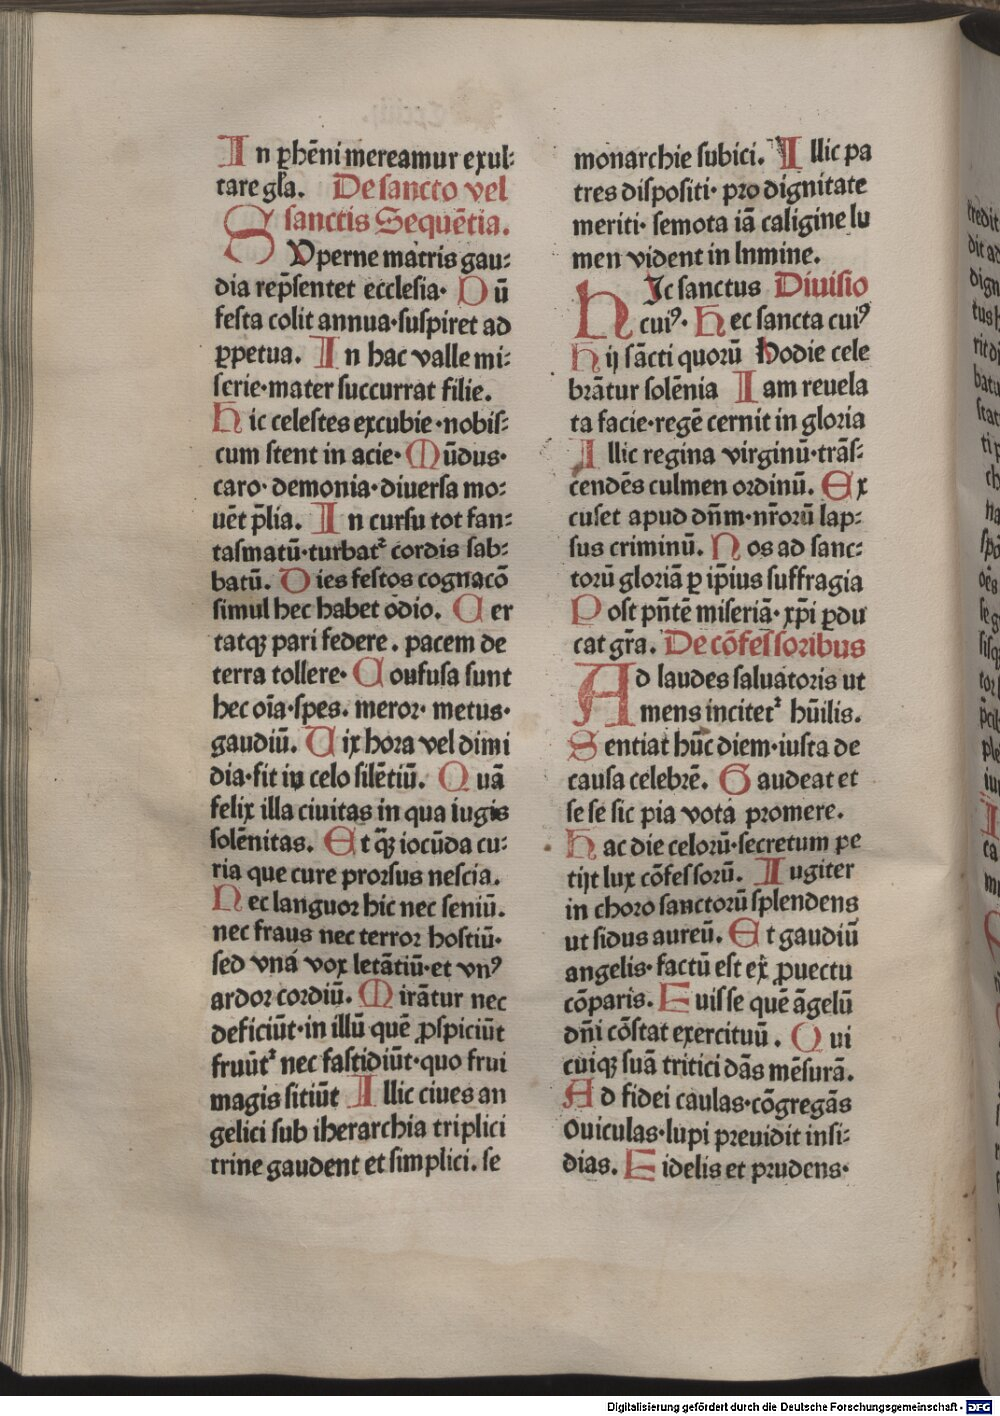 In ꝑhēni mereamur exul⸗
tare gl̄a. De sancto vel
sanctis Sequētia.
SVperne matris gau⸗
dia rep̄sentet ecclesia· Dū
festa colit annua·suspiret ad
ꝑpetua. In hac valle mi⸗
serie·mater succurrat filie.
Hic celestes excubie·nobis⸗
cum stent in acie· Mūdus·
caro· demonia·diuersa mo⸗
uēt p̄lia. In cursu tot fan⸗
tasmatū·turbatᷣ cordis sab⸗
batū. Dies festos cognacō
simul hec habet odio. Cer
tatqꝫ pari federe. pacem de
terra tollere· Coufusa sunt
hec oīa·spes. meror· metus·
gaudiū. Vix hora vel dimi
dia·fit iu celo silētiū. Quā
felix illa ciuitas in qua iugis
solēnitas. Et q̄ꝫ iocūda cu⸗
ria que cure prorsus nescia.
Nec languor hic nec seniū.
nec fraus nec terror hostiū·
sed vna vox letātiū·et vnꝰ
ardor cordiū. Mirātur nec
deficiūt·in illū quē ꝓspiciūt
fruūtᷣ nec fastidiūt·quo frui
magis sitiūt Illic ciues an
gelici sub iherarchia triplici
trine gaudent et simplici. se
monarchie subici. Illic pa
tres dispositi· pro dignitate
meriti· semota iā caligine lu
men vident in lnmine.
HIc sanctus Diuisio
cuiꝰ· Hec sancta cuiꝰ
Hij sācti quorū Hodie cele
brātur solēnia Iam reuela
ta facie·regē cernit in gloria
Illic regina virginū·trās⸗
cendēs culmen ordinū. Ex
cuset apud dn̄m·nr̄orū lap⸗
sus criminū. Nos ad sanc⸗
torū gloriā ꝑ ip̄ius suffragia
Post pn̄tē miseriā· xp̄i ꝑdu
cat gr̄a. De cōfessoribus
Ad laudes saluatoris ut
mens incitetᷣ hūilis.
Sentiat hūc diem·iusta de
causa celebrē. Gaudeat et
se se sic pia vota promere.
Hac die celorū·secretum pe
tijt lux cōfessorū. Iugiter
in choro sanctorū splendens
ut sidus aureū. Et gaudiū
angelis· factū est ex ꝓuectu
cōparis. Euisse quē āgelū
dn̄i cōstat exercituū. Qui
cuiqꝫ suā tritici dās mēsurā.
Ad fidei caulas·cōgregās
ouiculas·lupi preuidit insi⸗
dias. Eidelis et prudens·
credit
dit ad
dign
tus h
batu
stat
Digitalisierung gefördert durch die Deutsche Forschungsgemeinschaft - DFG